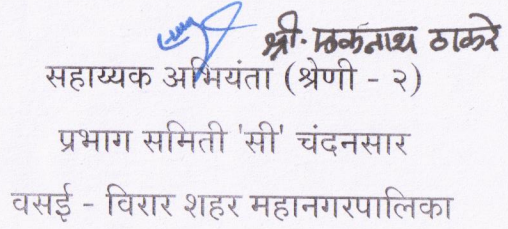 श्री. एकनाथ ठाकरे
सहाय्यक अभियंता (श्रेणी - २)
प्रभाग समिती 'सी' चंदनसार
वसई - विरार शहर महानगरपालिका